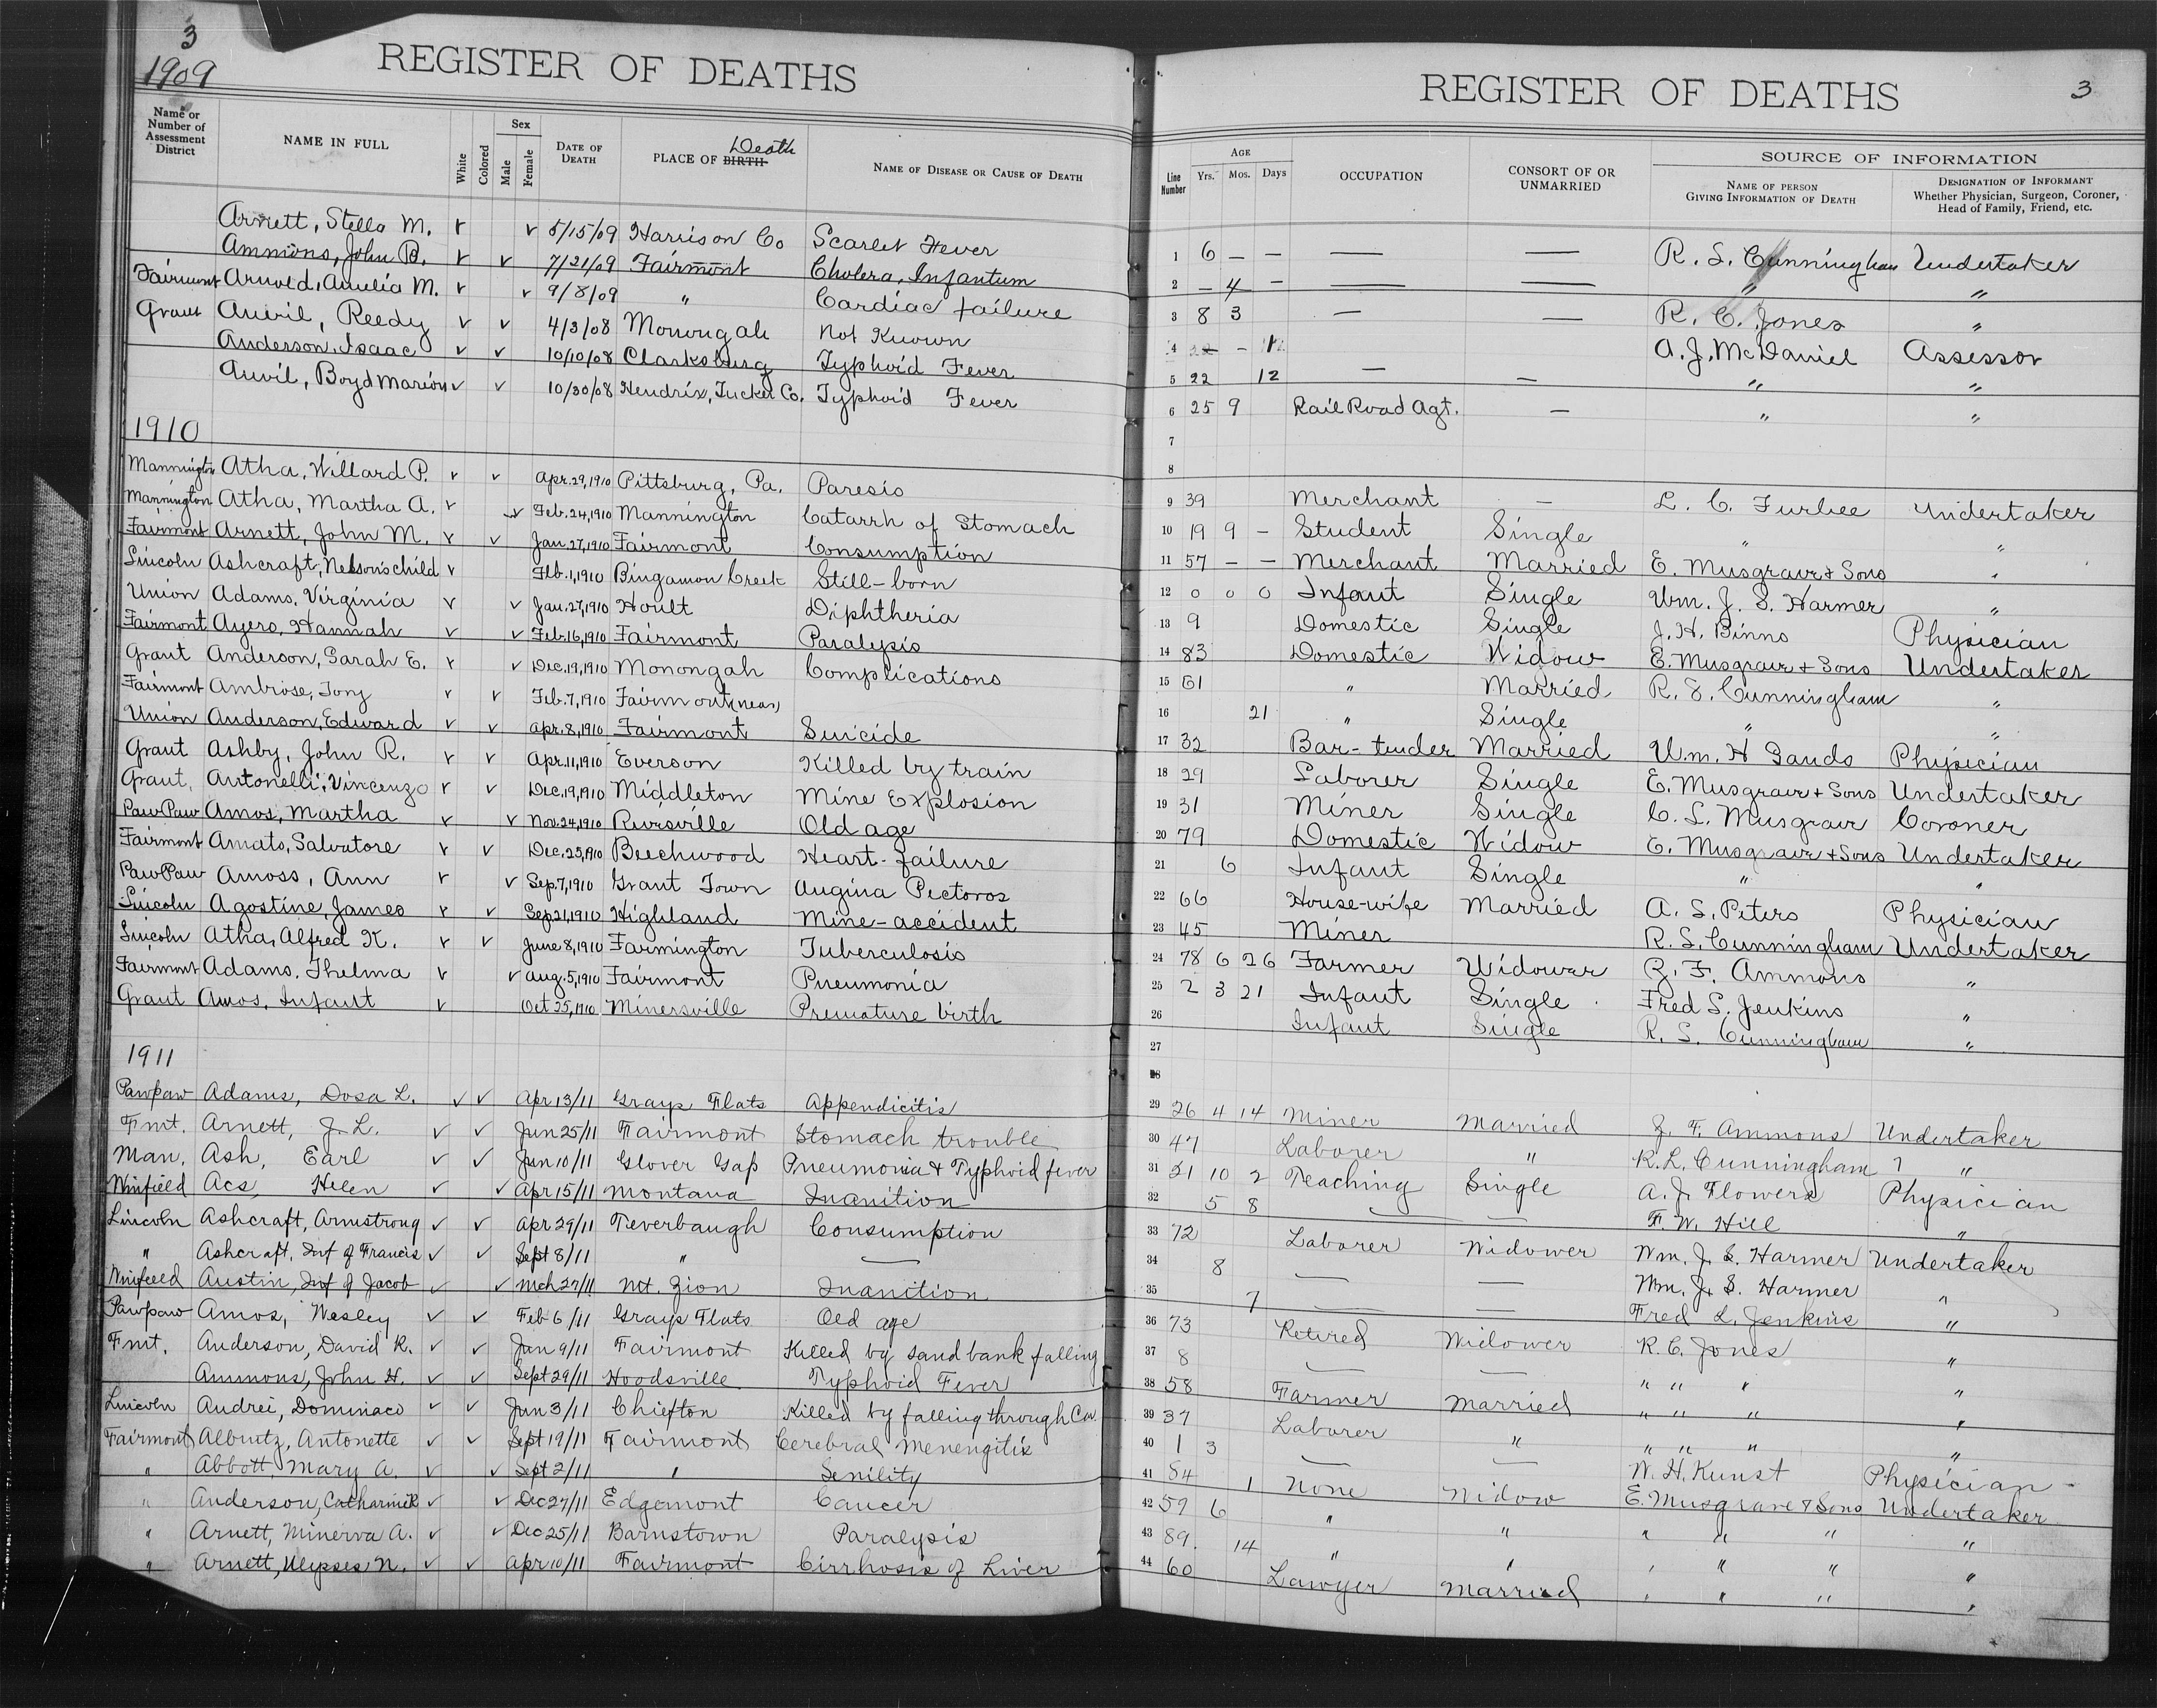 3
1909
REGISTER OF DEATHS
Name or Number of Assessment District
NAME IN FULL
White
Colored
Sex
Male
Female
DATE OF DEATH
PLACE OF BIRTH Death
NAME OF DISEASE OR CAUSE OF DEATH
Arnett, Stella M. ✓ ✓ 5/15/09 Harrison Co Scarlet Fever
Ammons, John B. ✓ ✓ 7/21/09 Fairmont Cholera, Infantum
Fairmont Arnold, Amelia M. ✓ ✓ 9/8/09 " Cardiac failure
Grant Auvil, Reedy ✓ ✓ 4/3/08 Monongah Not Known
Anderson, Isaac ✓ ✓ 10/10/08 Clarksburg Typhoid Fever
Auvil, Boyd Marion ✓ ✓ 10/30/08 Hendrix, Tucker Co. Typhoid Fever
1910
Mannington Atha, Willard P. ✓ ✓ Apr. 29, 1910 Pittsburg, Pa. Paresis
Mannington Atha, Martha A. ✓ ✓ Feb. 24, 1910 Mannington Catarrh of Stomach
Fairmont Arnett, John M. ✓ ✓ Jan. 27, 1910 Fairmont Consumption
Lincoln Ashcraft, Nelson's child ✓ Feb. 1, 1910 Bingamon Creek Still-born
Union Adams, Virginia ✓ ✓ Jan. 27, 1910 Hoult Diphtheria
Fairmont Ayers, Hannah ✓ ✓ Feb. 16, 1910 Fairmont Paralysis
Grant Anderson, Sarah E. ✓ ✓ Dec. 19, 1910 Monongah Complications
Fairmont Ambrose, Tony ✓ ✓ Feb. 7, 1910 Fairmont (near)
Union Anderson, Edward ✓ ✓ Apr. 8, 1910 Fairmont Suicide
Grant Ashby, John R. ✓ ✓ Apr. 11, 1910 Everson Killed by train
Grant, Antonelli, Vincenzo ✓ ✓ Dec. 19, 1910 Middleton Mine Explosion
Paw Paw Amos, Martha ✓ ✓ Nov. 24, 1910 Rivesville Old age
Fairmont Amato, Salvatore ✓ ✓ Dec. 25, 1910 Beechwood Heart-failure
Paw Paw Amoss, Ann ✓ ✓ Sep. 7, 1910 Grant Town Angina Pectoros
Lincoln Agostine, James ✓ ✓ Sep. 21, 1910 Highland Mine-accident
Lincoln Atha, Alfred K. ✓ ✓ June 8, 1910 Farmington Tuberculosis
Fairmont Adams, Thelma ✓ ✓ Aug. 5, 1910 Fairmont Pneumonia
Grant Amos, Infant ✓ Oct 25, 1910 Minersville Premature birth
1911
Pawpaw Adams, Dosa L. ✓ ✓ Apr 13/11 Grays Flats Appendicitis
Fmt. Arnett, J. L. ✓ ✓ Jun 25/11 Fairmont Stomach trouble
Man. Ash, Earl ✓ ✓ Jun 10/11 Glover Gap Pneumonia & Typhoid fever
Winfield Acs, Helen ✓ ✓ Apr 15/11 Montana Inanition
Lincoln Ashcraft, Armstrong ✓ ✓ Apr 29/11 Teverbaugh Consumption
" Ashcraft, Inf of Francis ✓ ✓ Sept 8/11 " —
Winfield Austin, Inf of Jacob ✓ ✓ Mch 27/11 Mt. Zion Inanition
Pawpaw Amos, Wesley ✓ ✓ Feb 6/11 Grays Flats Old age
Fmt. Anderson, David R. ✓ ✓ Jun 9/11 Fairmont Killed by sand bank falling
Ammons, John H. ✓ ✓ Sept 29/11 Hoodsville Typhoid Fever
Lincoln Andrei, Dominaco ✓ ✓ Jun 3/11 Chiefton Killed by falling through Car.
Fairmont Albutz, Antonette ✓ ✓ Sept 19/11 Fairmont Cerebral Menengitis
" Abbott, Mary A. ✓ ✓ Sept 2/11 " Senility
" Anderson, Catharine ✓ ✓ Dec 27/11 Edgemont Cancer
" Arnett, Minerva A. ✓ ✓ Dec 25/11 Barnstown Paralysis
" Arnett, Ulysses N. ✓ ✓ Apr 10/11 Fairmont Cirrhosis of Liver
REGISTER OF DEATHS
3
Line Number
AGE
Yrs. Mos. Days
OCCUPATION
CONSORT OF OR UNMARRIED
SOURCE OF INFORMATION
NAME OF PERSON GIVING INFORMATION OF DEATH
DESIGNATION OF INFORMANT
Whether Physician, Surgeon, Coroner, Head of Family, Friend, etc.
1 6 — — — — R. S. Cunningham Undertaker
2 — 4 — — — " "
3 8 3 — — R. C. Jones "
4 — A. J. McDaniel Assessor
5 22 12 — — " "
6 25 9 Rail Road Agt. — " "
7
8
9 39 Merchant — L. C. Furbee Undertaker
10 19 9 — Student Single " "
11 57 — — Merchant Married E. Musgrave & Sons "
12 0 0 0 Infant Single Wm. J. S. Harmer "
13 9 Domestic Single J. H. Binns Physician
14 83 Domestic Widow E. Musgrave & Sons Undertaker
15 61 " Married R. S. Cunningham "
16 21 " Single " "
17 32 Bar-tender Married Wm. H Sands Physician
18 29 Laborer Single E. Musgrave & Sons Undertaker
19 31 Miner Single C. L. Musgrave Coroner
20 79 Domestic Widow E. Musgrave & Sons Undertaker
21 6 Infant Single " "
22 66 House-wife Married A. S. Peters Physician
23 45 Miner R. S. Cunningham Undertaker
24 78 6 26 Farmer Widower Z. F. Ammons "
25 2 3 21 Infant Single Fred S. Jenkins "
26 Infant Single R. S. Cunningham "
27
28
29 26 4 14 Miner Married Z. F. Ammons Undertaker
30 47 Laborer " R. L. Cunningham ? "
31 21 10 2 Teaching Single A. J. Flowers Physician
32 5 8 — — F. W. Hill "
33 72 Laborer Widower Wm. J. S. Harmer Undertaker
34 8 — — Wm. J. S. Harmer "
35 7 — — Fred L. Jenkins "
36 73 Retired Widower R. C. Jones "
37 8 — — " " " "
38 58 Farmer Married " " " "
39 37 Laborer " " " " "
40 1 3 — — W. H. Kunst Physician
41 84 1 None Widow E. Musgrave & Sons Undertaker
42 59 6 " " " " " "
43 89 14 " " " " " "
44 60 Lawyer Married " " " "